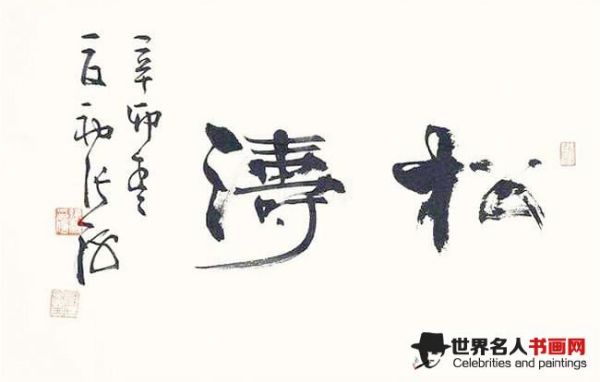 松濤
辛卯
夏初張海
世界名人书画网
Celebrities and paintings